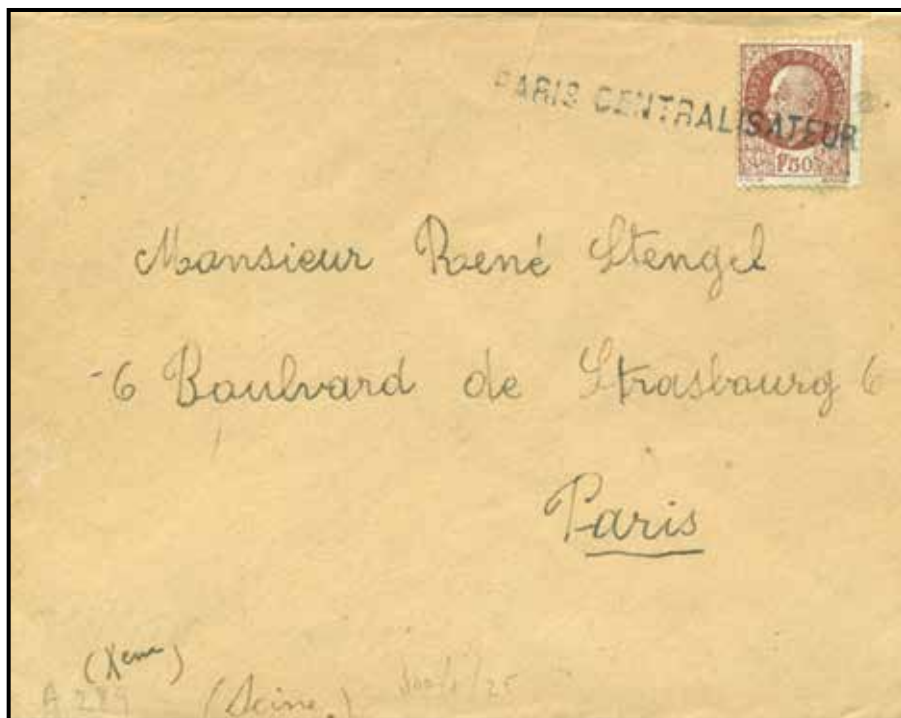 PARIS CENTRALISATEUR
1F50
Monsieur René Stengel
-6 Boulvard de Strasbourg 6
Paris
(Xeme)
A 289 (Seine)